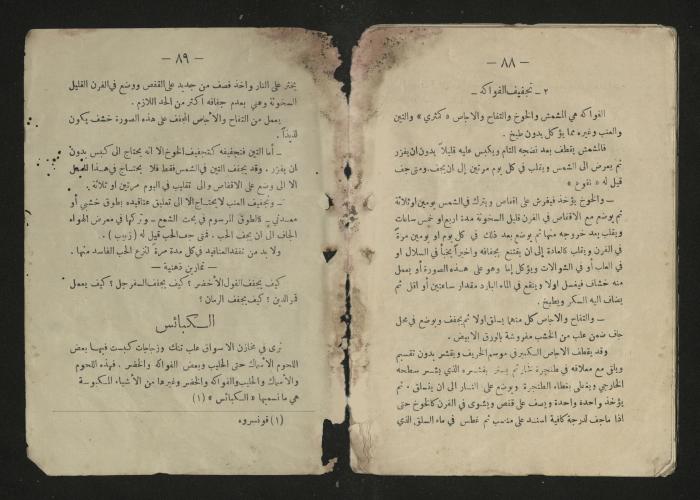 — ٨٨ —
٢ ـ تجفيف الفواكه ـ
الفواكه هي المشمش والخوخ والتفاح والاجاص « كمثرى » والتين
والعنب وغيره مما يؤكل بدون طبخ .
فالمشمش يقطف بعد نضجه التام ويكبس عليه قليلاً بدون ان يفزر
ثم يعرض الى الشمس ويقلب في كل يوم مرتين إلى ان يجف . ومتى جف
قيل له « نقوع »
— والخوخ يؤخذ فيفرش على اقفاص ويترك في الشمس يومين او ثلاثة
ثم يوضع مع الاقفاص في الفرن قليل السخونة مدة اربع او خمس ساعات
ويقلب بعد خروجه منها ثم يوضع بعد ذلك في كل يوم او يومين مرة
في الفرن ويقلب كالعادة إلى ان يقتنع بجفافه واخيراً يخبأ في السلال او
في العلب أو في الشوالات ويؤكل إما وهو على هذه الصورة أو يعمل
منه خشاف فيغسل اولا وينقع في الماء البارد مقدار ساعتين أو اقل ثم
يضاف اليه السكر ويطبخ .
— والتفاح والاجاص كل منهما يسلق اولا ثم يجفف ويوضع في محل
جاف ضمن علب من الخشب مفروشة بالورق الابيض .
وقد يقطف الاجاص الصغير في موسم الخريف ويقشر بدون تقسيم
ويلقى مع معلاقه في طنجرة ثم بقشره الذي يستر سطحه
الخارجي ويغطى بغطاء الطنجرة ويوضع على النار الى ان يسلق . ثم
يؤخذ واحدة واحدة ويصف على قفص ويشوى في الفرن كالخوخ حتى
اذا ما جف لدرجة كافية استند على ثم غطس في ماء السلق الذي
— ٨٩ —
يخثر على النار واخذ فصف من جديد على القفص ووضع في الفرن القليل
السخونة وهي بعدم جفافه اكثر من الحد اللازم .
يعمل من التفاح والاجاص المجفف على هذه الصورة خشف يكون
لذيذاً .
ـ أما التين فتجفيفه كتجفيف الخوخ الا انه يحتاج الى كبس بدون
ان يفزر . وقد يجفف التين في الشمس فقط فلا يحتاج في هذا العمل
الا الى وضع على الاقفاص والى تقليب في اليوم مرتين او ثلاثة .
ـ وتجفيف العنب لا يحتاج إلا الى تعليق عناقيده بطوق خشبي أو
معدني ـ كالطوق المرسوم في بحث الشمع ـ وتركها في معرض الهواء
الجاف الى ان يجف الحب . فمتى جف الحب قيل له ( زبيب ) .
ولا بد من تفقد العناقيد في كل مدة مرة لنزع الحب الفاسد منها .
— تمارين ذهنية —
كيف يجفف الفول الأخضر ؟ كيف يجفف السفرجل ؟ كيف يعمل
قمر الدين ؟ كيف يجفف الرمان ؟
الكبائس
نرى في مخازن الاسواق علب تنك وزجاجات كبست فيها بعض
اللحوم الأسماك حتى الحليب وبعض الفواكه والخضر . فهذه اللحوم
والاسماك والحليب والفواكه والخضر وغيرها من الأشياء المكبوسة
هي ما نسميها « الكبائس » (١)
(١) قونسروه